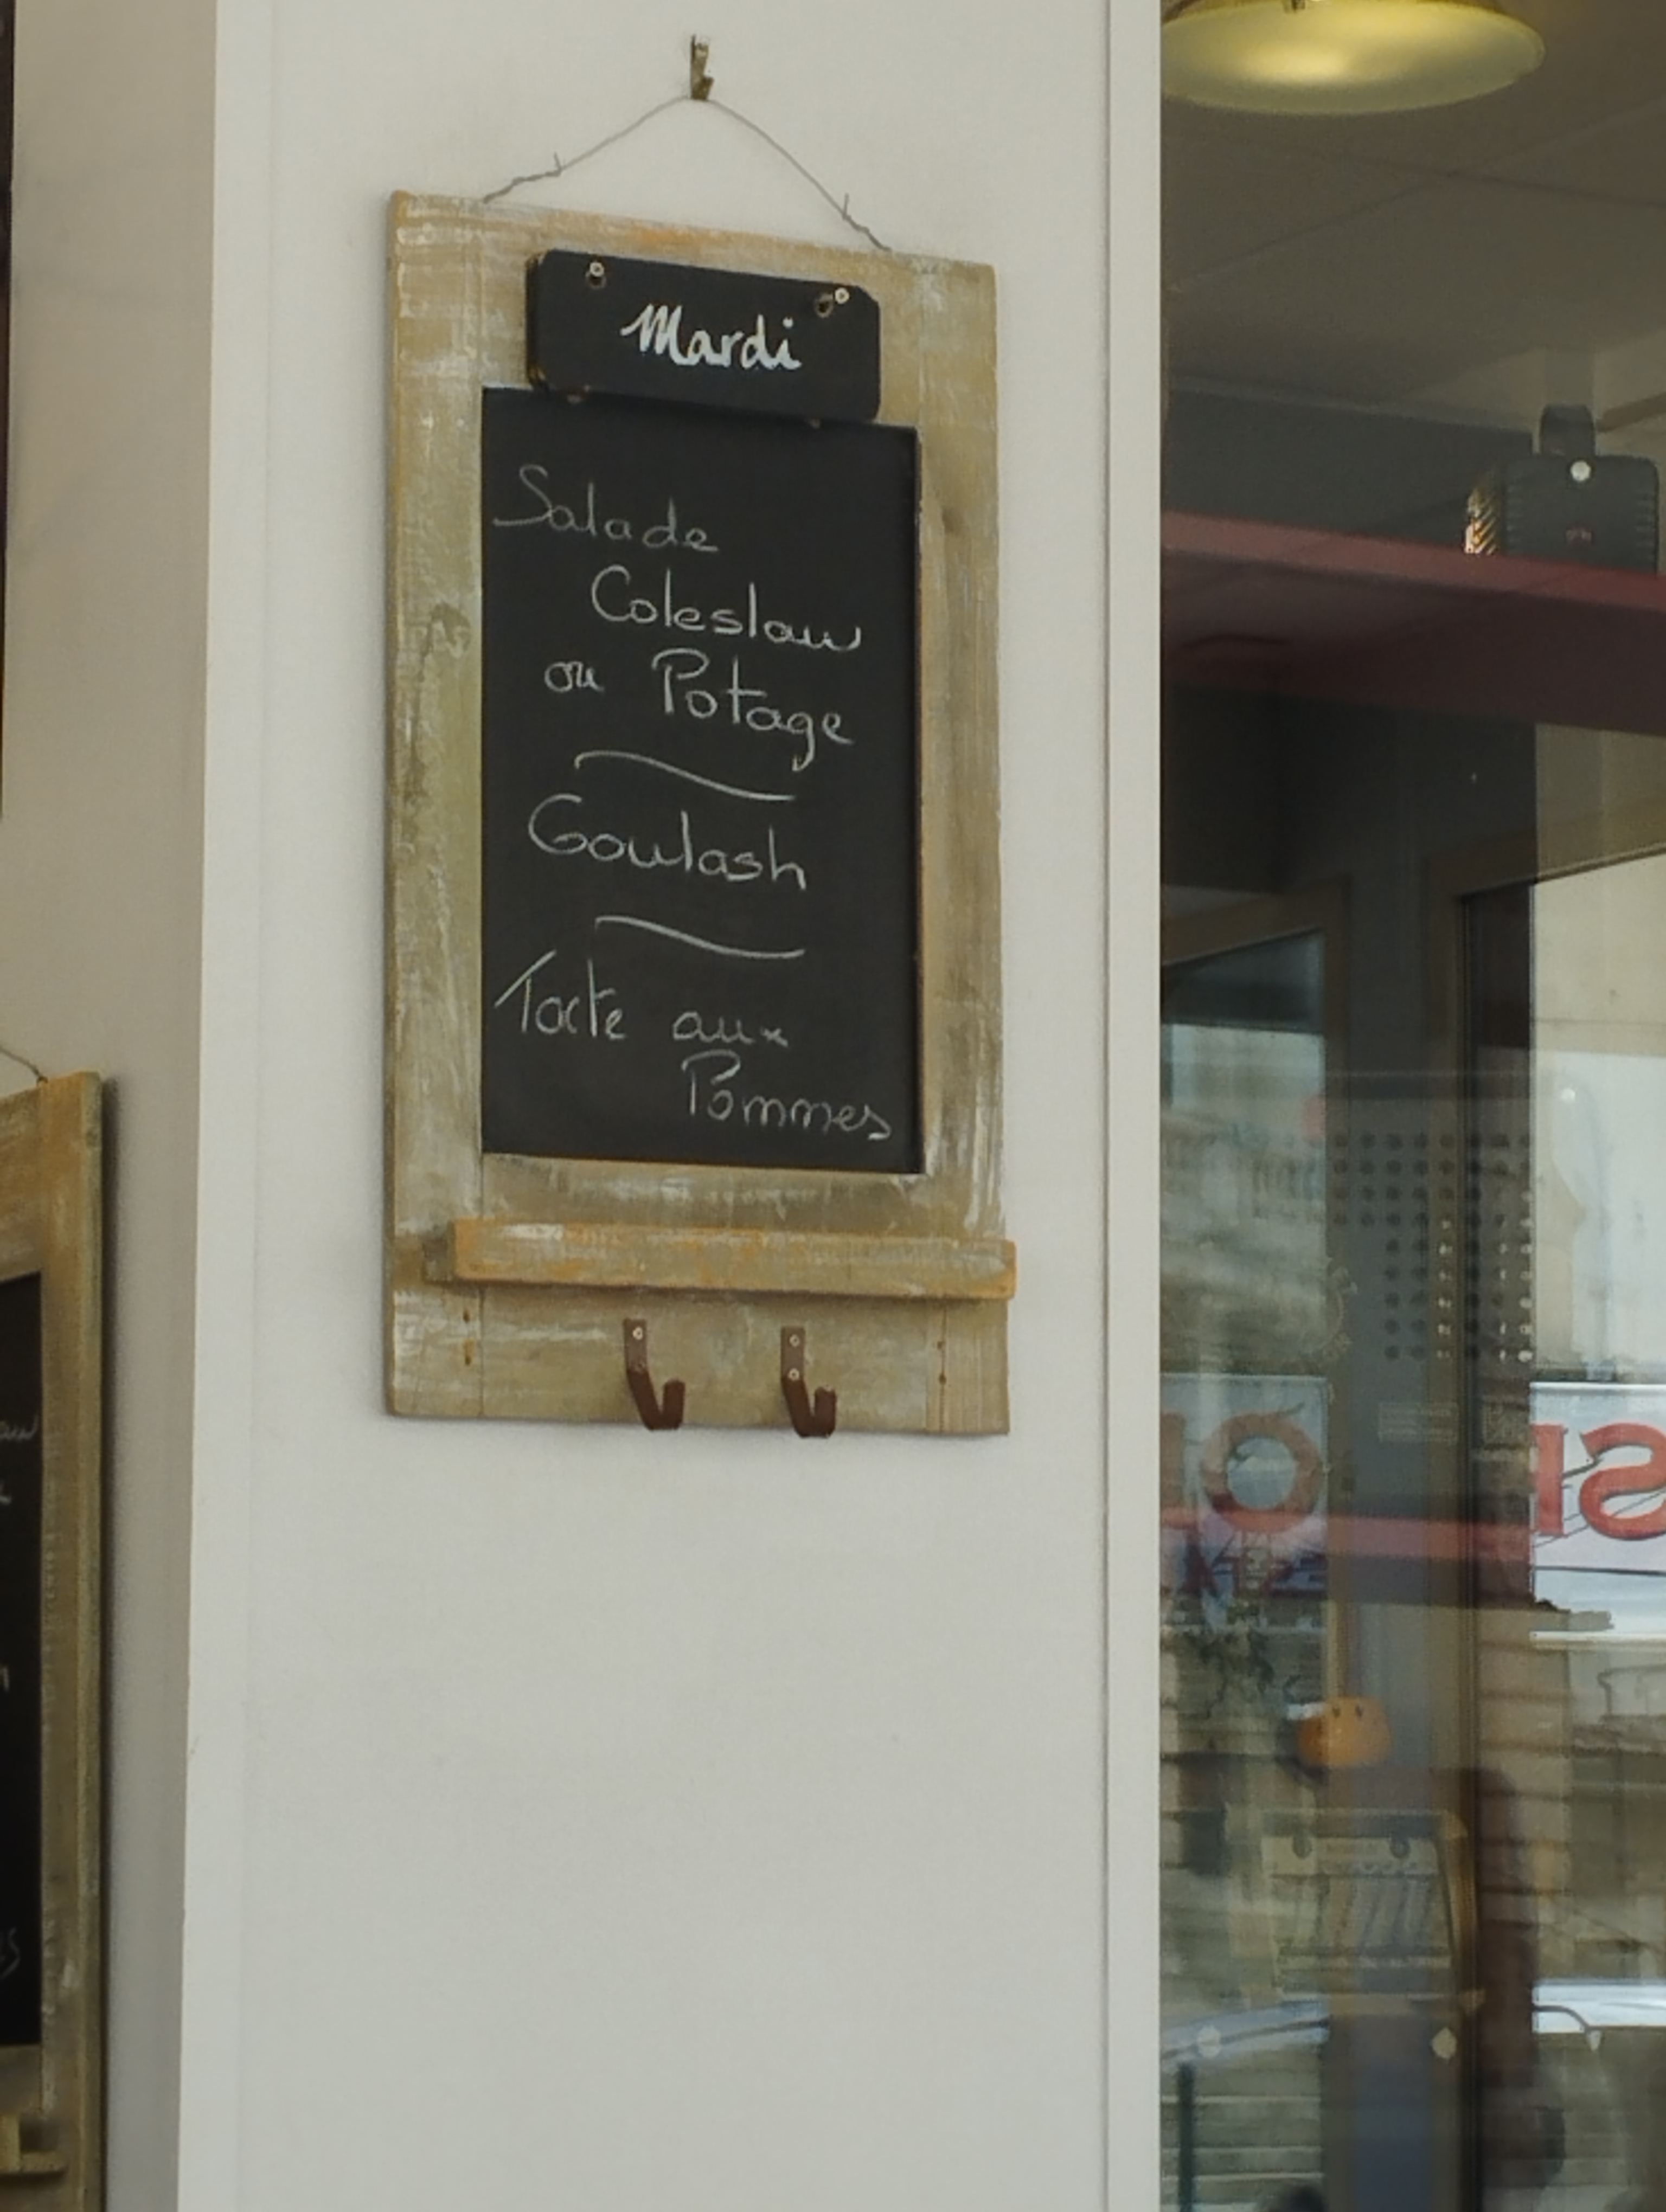 Mardi
Salade
Coleslaw
ou Potage
Goulash
Tarte aux
Pommes